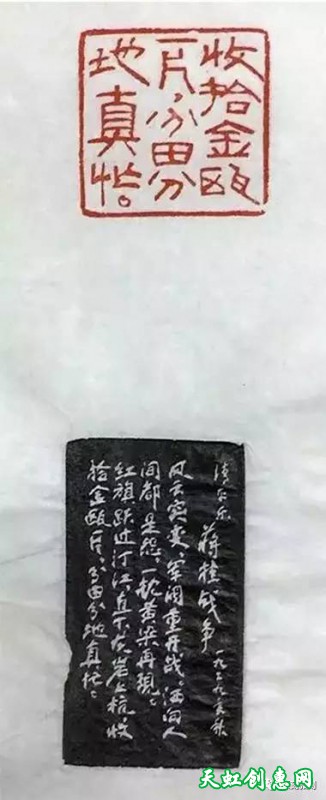 收拾金瓯
一片，分田分
地真忙。
清平乐 蒋桂战争 一九二九年秋
风云突变，军阀重开战。洒向人
间都是怨，一枕黄粱再现。
红旗跃过汀江，直下龙岩上杭。收
拾金瓯一片，分田分地真忙。
天虹创惠网